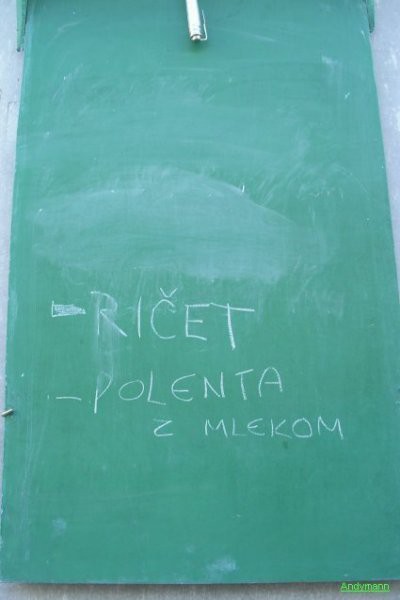 - RIČET
- POLENTA
Z MLEKOM
Andymann